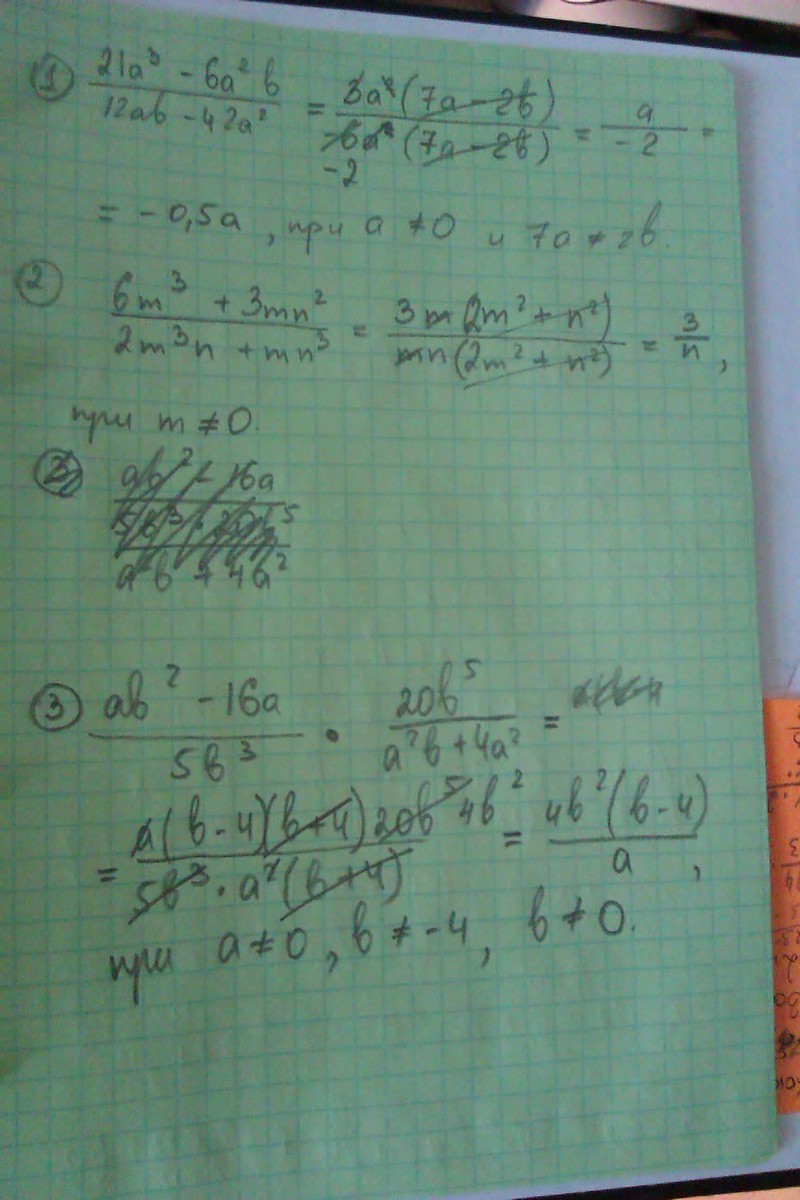 ① (21a³ - 6a²b)/(12ab - 42a²) = 3a²(7a - 2b)/-6a²(7a - 2b) = a/-2 =
-2
= -0,5a , при a ≠ 0 и 7a ≠ 2b.
② (6m³ + 3mn²)/(2m³n + mn³) = 3m(2m² + n²)/mn(2m² + n²) = 3/n ,
при m ≠ 0.
③ (ab² - 16a)/5b³ · 20b⁵/(a²b + 4a²) =
= a(b-4)(b+4) 20b⁵ 4b²/5b³ · a²(b+4) = 4b²(b-4)/a ,
при a ≠ 0 , b ≠ -4 , b ≠ 0.